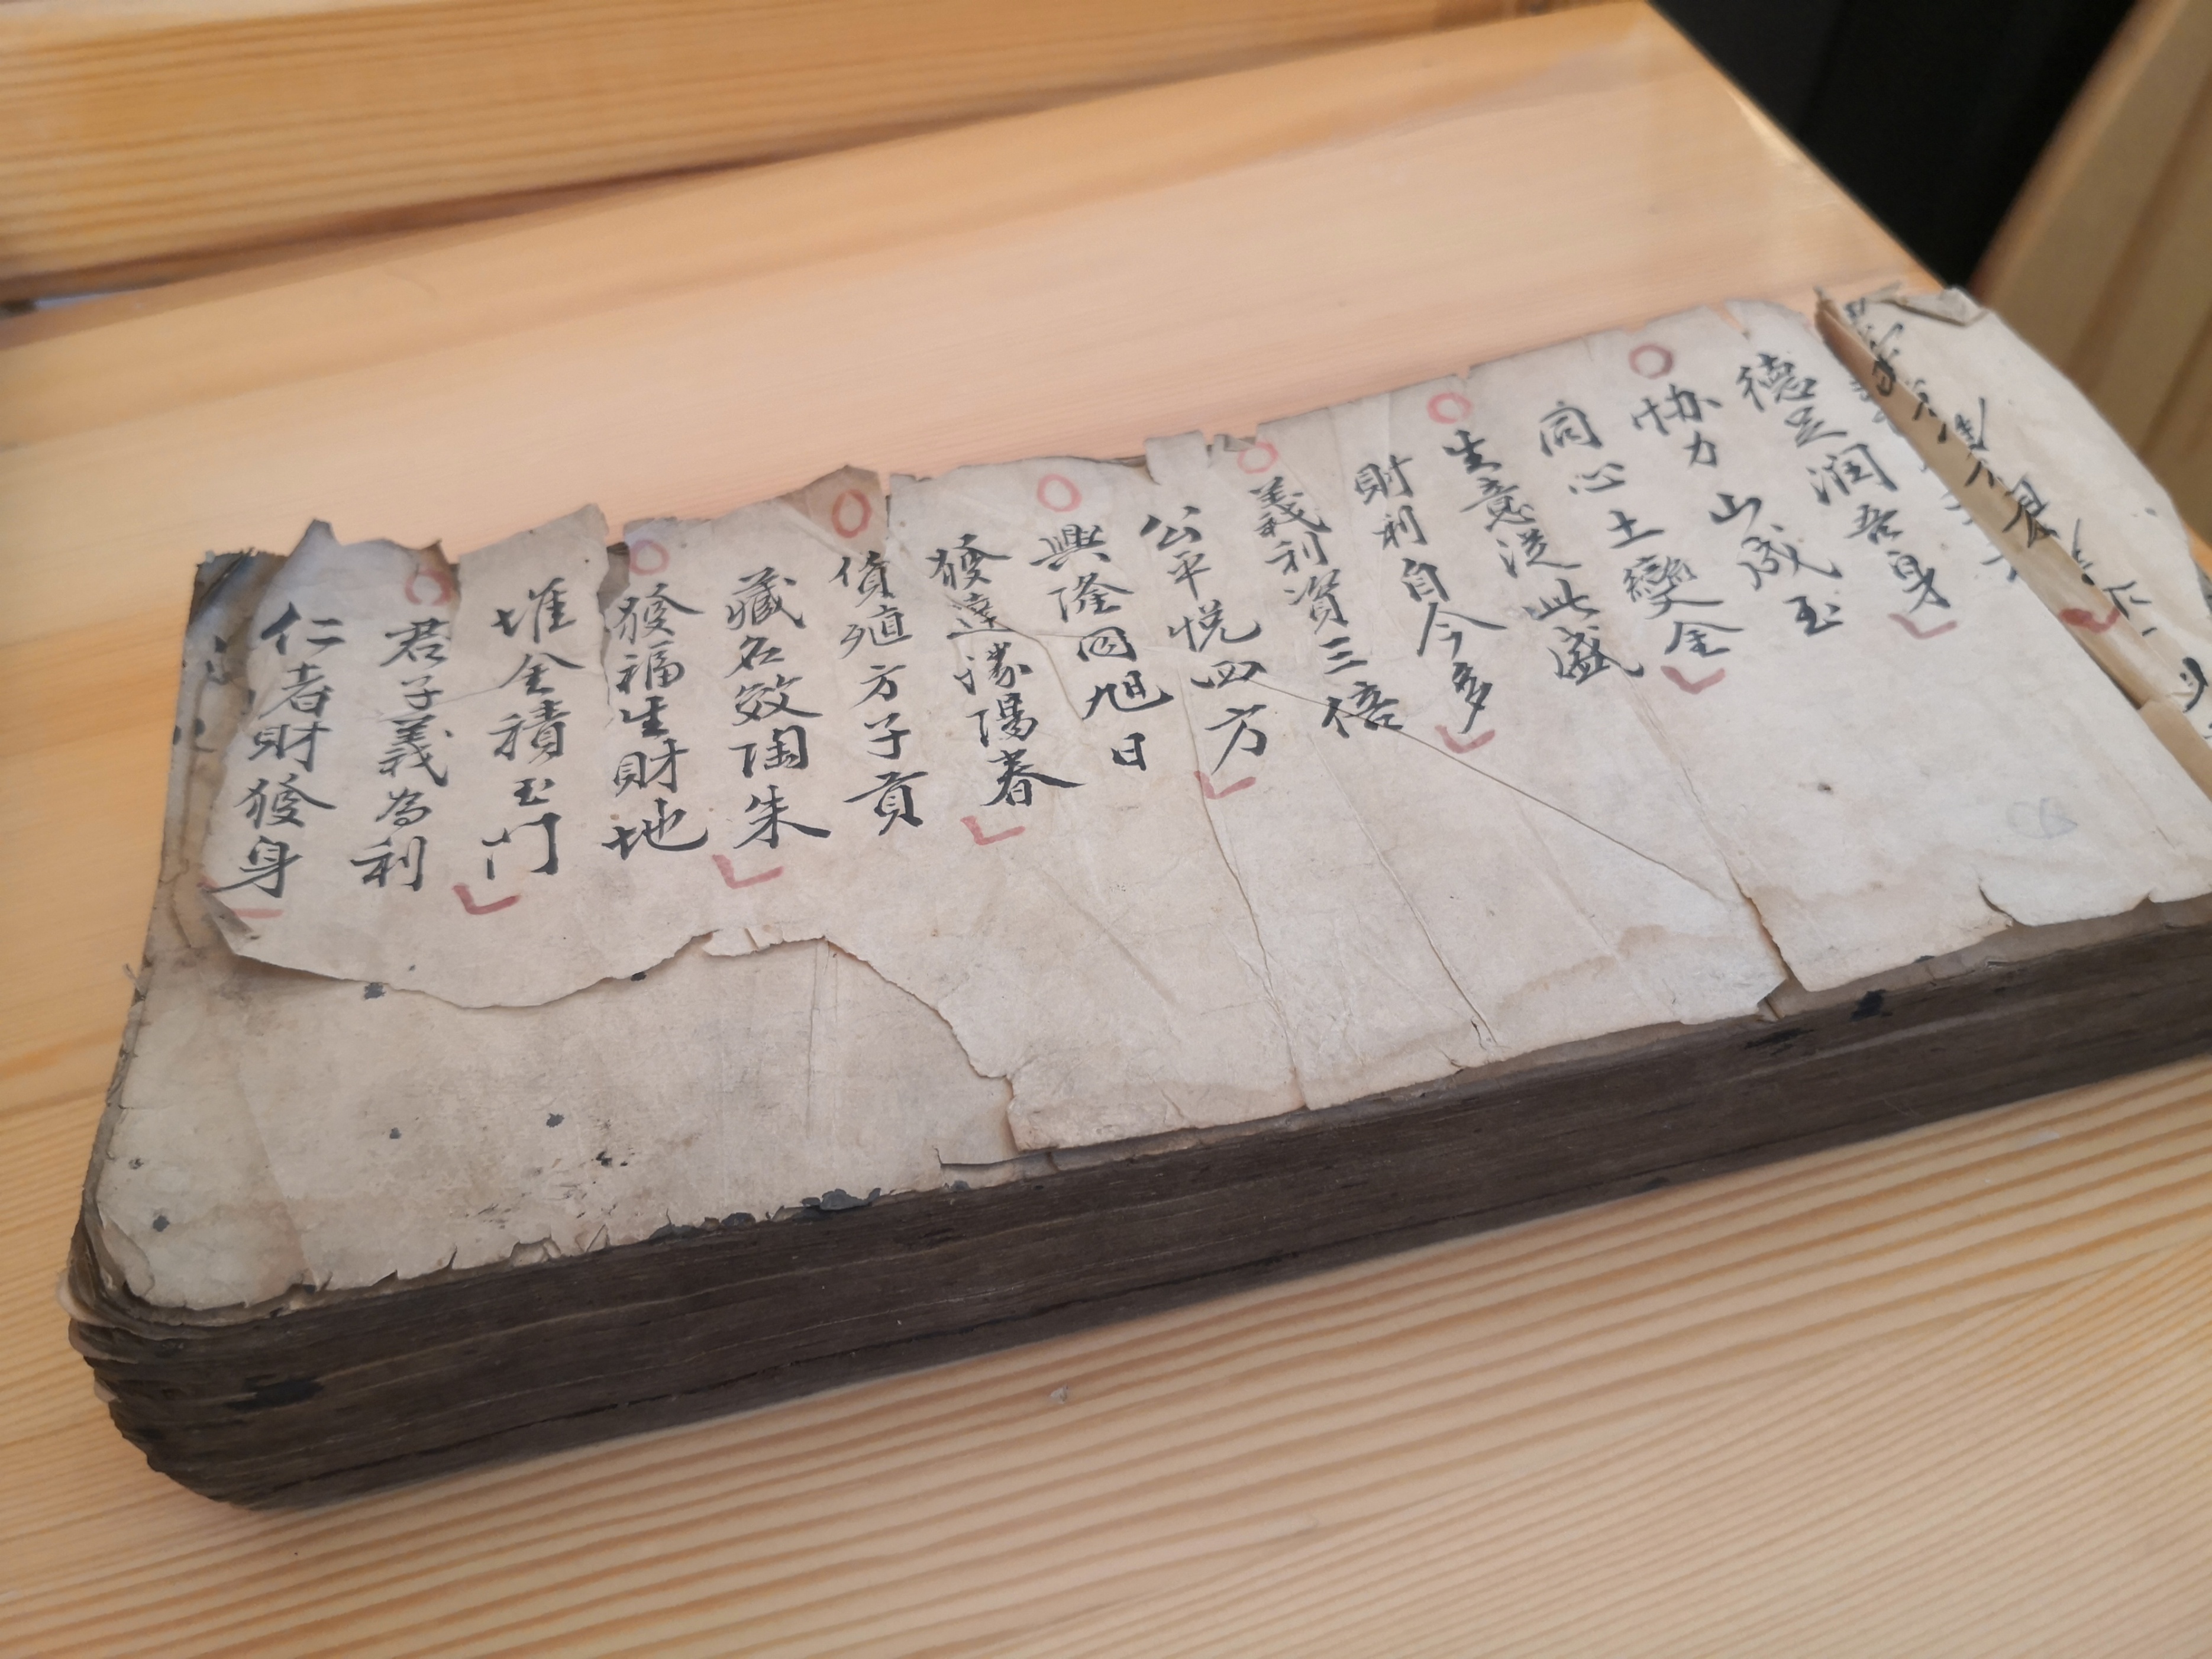 德足润吾身
協力山成玉
同心土變金
生意從此盛
財利自今多
義利資三倍
公平悦四方
興隆同旭日
發達勝陽春
貨殖方子貢
藏名效陶朱
發福生財地
堆金積玉門
君子義為利
仁者財發身